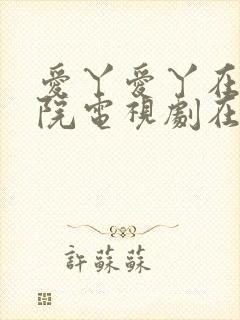 愛丫愛丫在
院電視劇在
許蘇蘇